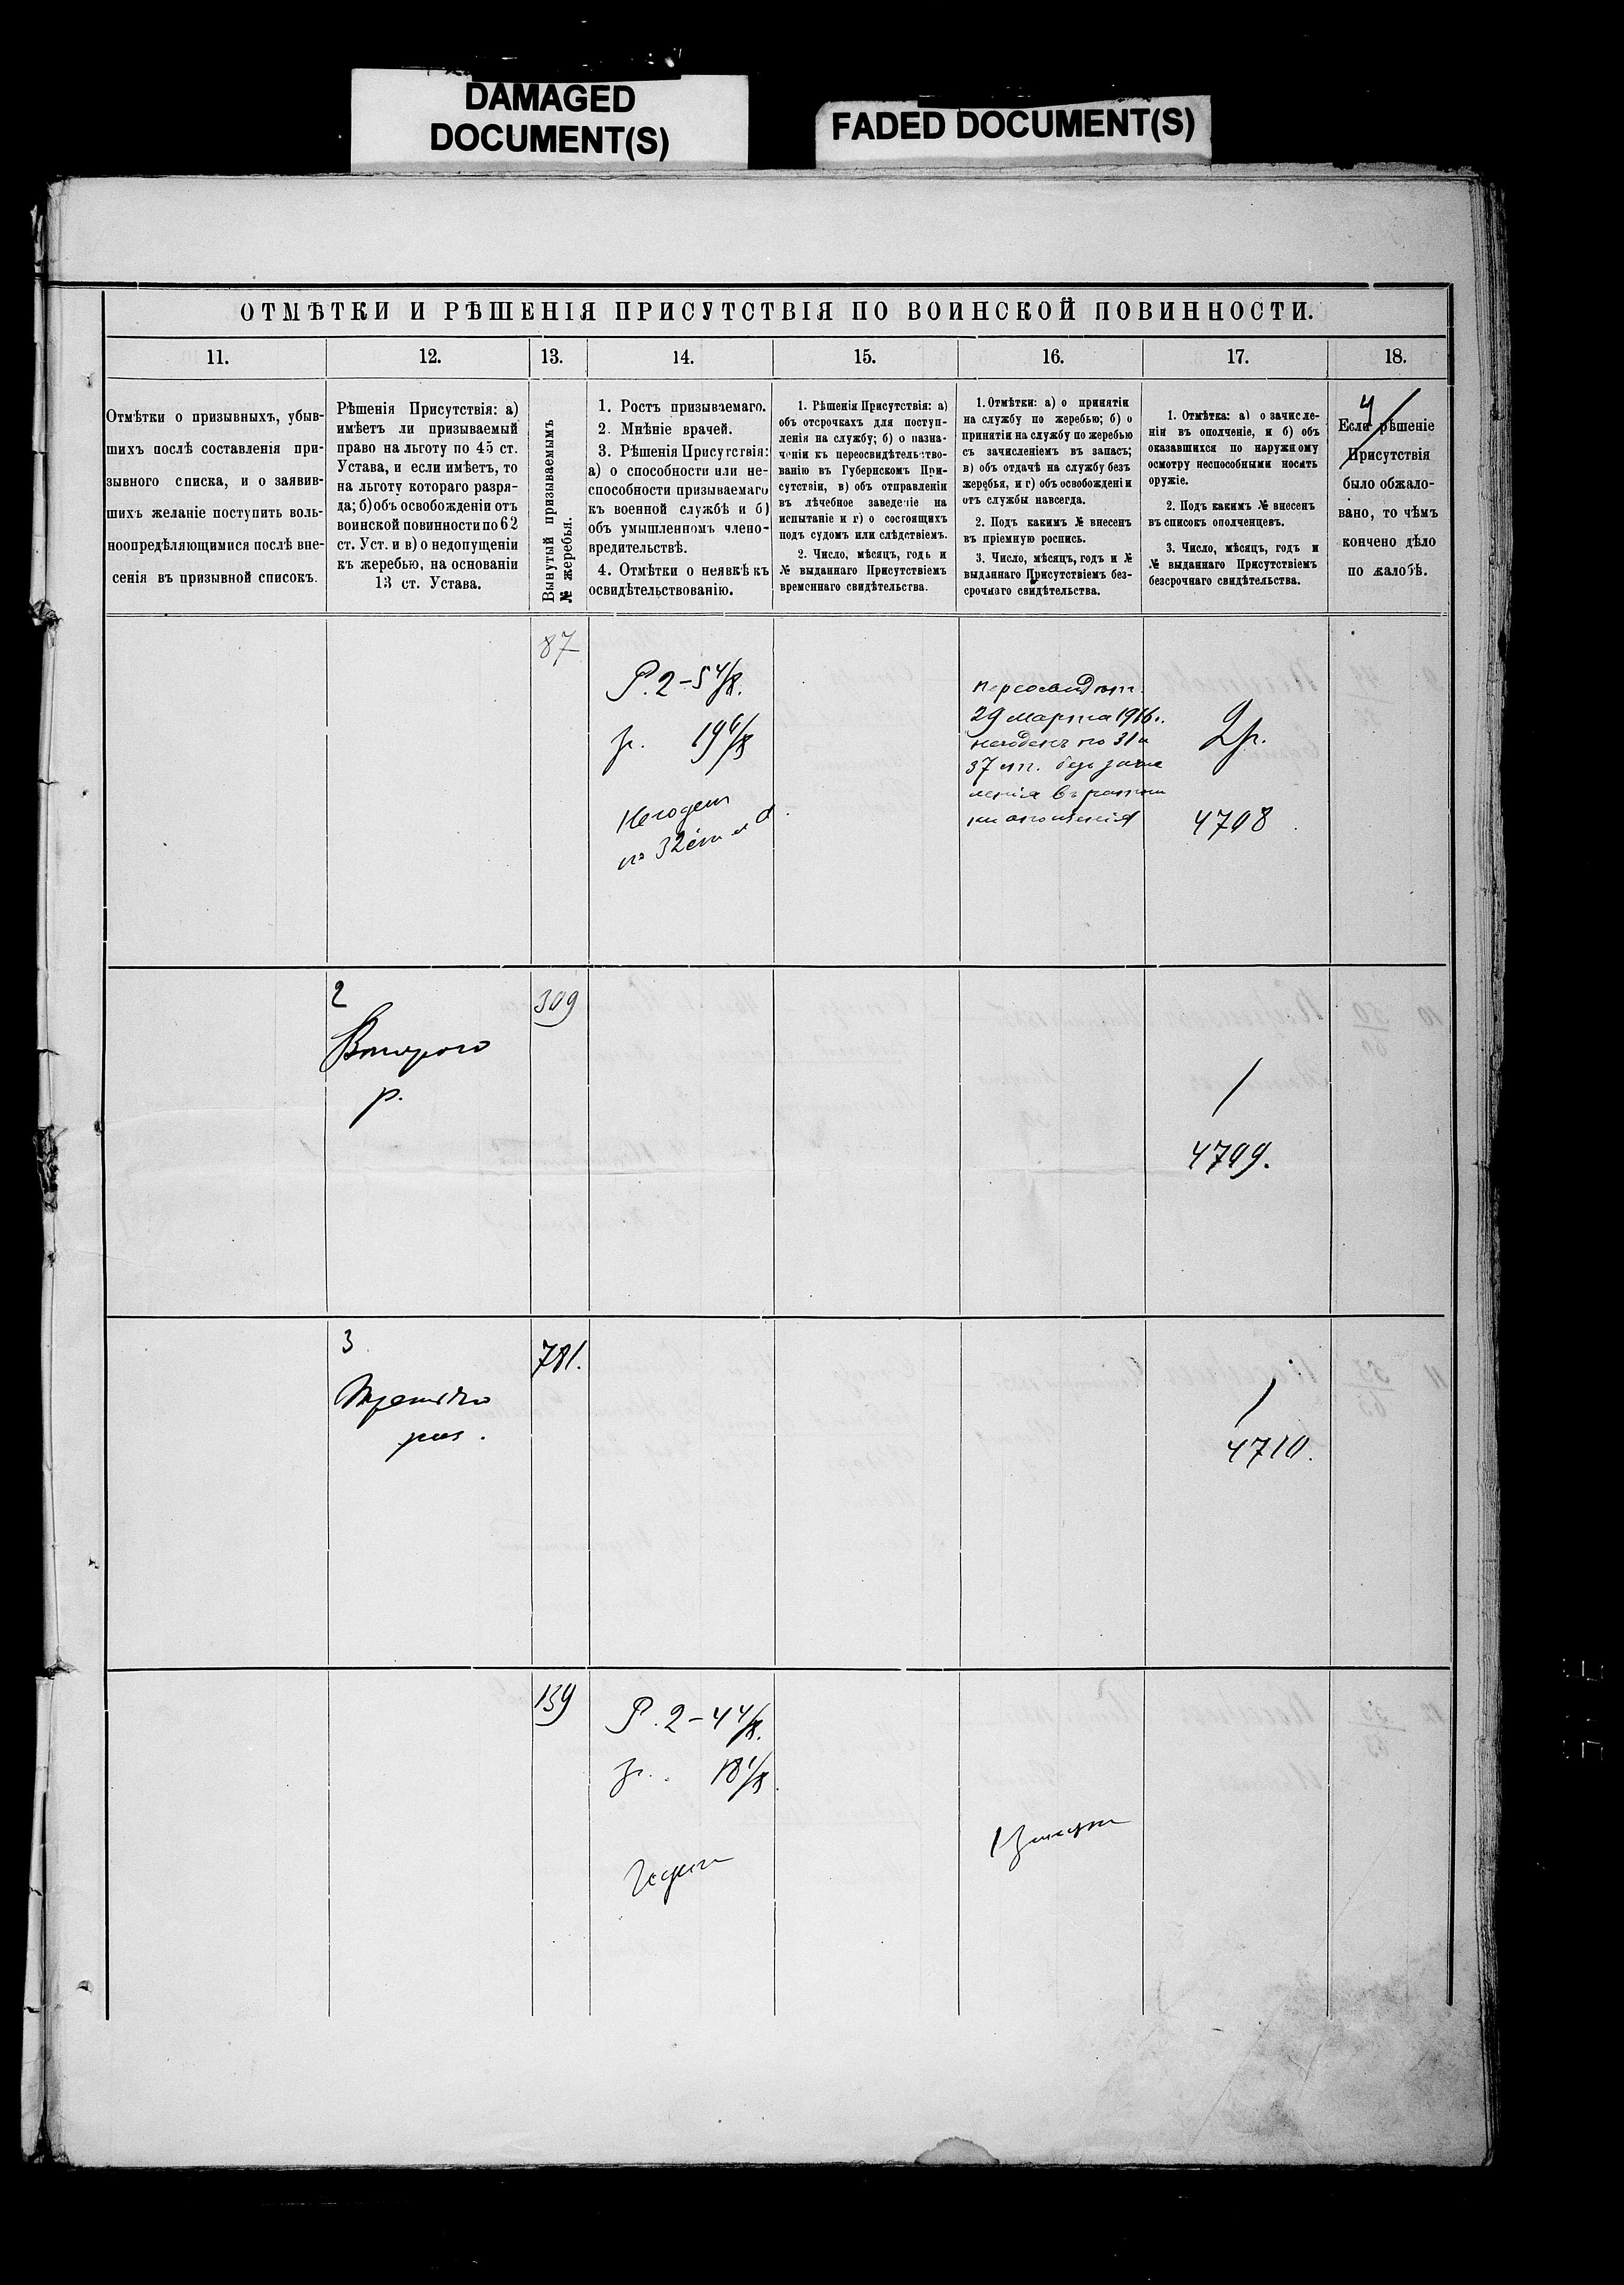 DAMAGED
DOCUMENT(S)
FADED DOCUMENT(S)
ОТМѢТКИ И РѢШЕНІЯ ПРИСУТСТВІЯ ПО ВОИНСКОЙ ПОВИННОСТИ.
11.
12.
13.
14.
15.
16.
17.
18.
Отмѣтки о призывныхъ, убыв-
шихъ послѣ составленія при-
зывного списка, и о заявив-
шихъ желаніе поступить воль-
ноопредѣляющимися послѣ вне-
сенія въ призывной списокъ.
Рѣшенія Присутствія: а)
имѣетъ ли призываемый
право на льготу по 45 ст.
Устава, и если имѣетъ, то
на льготу котораго разря-
да; б) объ освобожденіи отъ
воинской повинности по 62
ст. Уст. и в) о недопущеніи
къ жеребью, на основаніи
13 ст. Устава.
Вынутый призываемымъ
№ жеребья.
1. Ростъ призываемаго.
2. Мнѣніе врачей.
3. Рѣшенія Присутствія:
а) о способности или не-
способности призываемаго
къ военной службѣ и б)
объ умышленномъ члено-
вредительствѣ.
4. Отмѣтки о неявкѣ къ
освидѣтельствованію.
1. Рѣшенія Присутствія: а)
объ отсрочкахъ для поступ-
ленія на службу; б) о назна-
ченіи къ переосвидѣтельство-
ванію въ Губернскомъ При-
сутствіи, в) объ отправленіи
въ лѣчебное заведеніе на
испытаніе и г) о состоящихъ
подъ судомъ или слѣдствіемъ.
2. Число, мѣсяцъ, годъ и
№ выданнаго Присутствіемъ
временнаго свидѣтельства.
1. Отмѣтки: а) о принятіи
на службу по жеребью; б) о
принятіи на службу по жеребью
съ зачисленіемъ въ запасъ;
в) объ отдачѣ на службу безъ
жеребья, и г) объ освобожденіи
отъ службы навсегда.
2. Подъ какимъ № внесенъ
въ пріемную роспись.
3. Число, мѣсяцъ, годъ и №
выданнаго Присутствіемъ без-
срочнаго свидѣтельства.
1. Отмѣтка: а) о зачисле-
ніи въ ополченіе, и б) объ
оказавшихся по наружному
осмотру неспособными носить
оружіе.
2. Подъ какимъ № внесенъ
въ списокъ ополченцевъ.
3. Число, мѣсяцъ, годъ и
№ выданнаго Присутствіемъ
безсрочнаго свидѣтельства.
4
Если рѣшеніе
Присутствія
было обжало-
вано, то чѣмъ
кончено дѣло
по жалобѣ.
87
Р. 2-5 4/8.
гр. 19 6/8
Негоденъ
по 32 ст
переосвидѣт.
29 марта 1916 г.
негоденъ по 31 и
37 ст. безъ зачис
ленія въ ратни
ки ополченія
2 р.
4708
2
Второго
р.
309
/
4709.
3
Третьяго
раз.
781.
/
4710.
139
Р. 2-4 4/8.
гр. 18 1/8
Годенъ
Принятъ